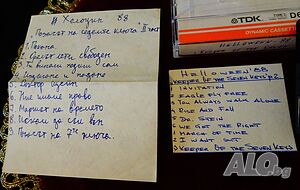 # Хелоуин 88
"Пазачът на седемте ключа" II част
1 Покана
2 Орелът лети свободен
3 Ти винаги ходиш сам
4 Издигане и падане
5 Доктор Щайн
6 Ние имаме право
7 Маршът на времето
8 Искам да съм вън
9 Пазачът на 7те ключа.
TDK
DYNAMIC CASSETTE
Helloween '88
KEEPER OF THE SEVEN KEYS P.2
1 INVITATION
2 EAGLE FLY FREE
3 YOU ALWAYS WALK ALONE
4 RISE AND FALL
5 DR. STEIN
6 WE GOT THE RIGHT
7 MARCH OF TIME
8 I WANT OUT
9 KEEPER OF THE SEVEN KEYS
ALO.bg